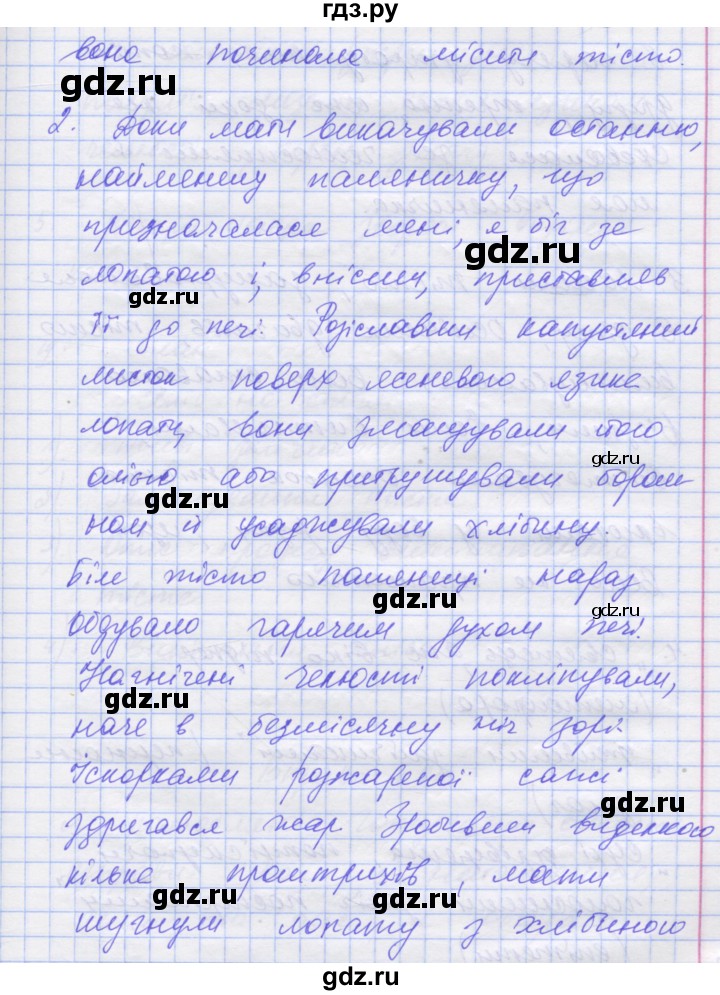 гдз.ру
вона починала місити тісто.
gdz.ru
2. Доки мати викачували останню,
найменшу паляничку, що
призначалася мені, я біг за
gdz.ru
лопатою і, внісши, приставляв
gdz.ru
її до печі. Розіславши капустяний
gdz.ru
листок поверх ясеневого язика
лопати, вони змащували його
gdz.ru
олією або притрушували борош
gdz.ru
ном й усаджували хлібину.
Біле тісто паляниці нараз
gdz.ru
gdz.ru
обдувало гарячим духом печі.
Нагнічені челюсті покліпували,
gdz.ru
наче в безмісячну ніч зорі.
Іскорками розжареної сажі
gdz.ru
здригався жар. Зробивши виделкою
кілька проштрихів, мати
gdz.ru
gdz.ru
шугнули лопату з хлібиною
gdz.ru